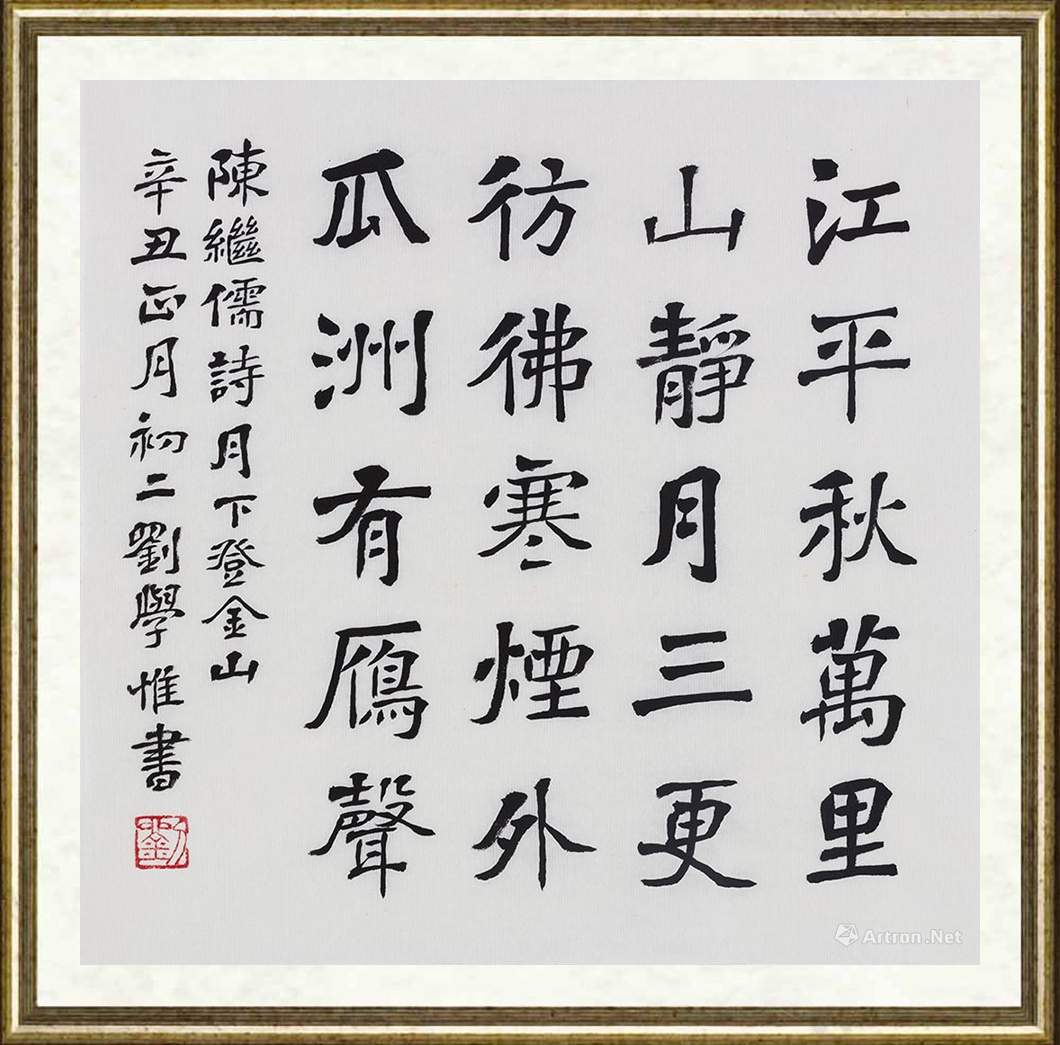 江平秋萬里
山靜月三更
彷彿寒煙外
瓜洲有鴈聲
陳繼儒詩月下登金山
辛丑正月初二劉學惟書
劉
Artron.Net